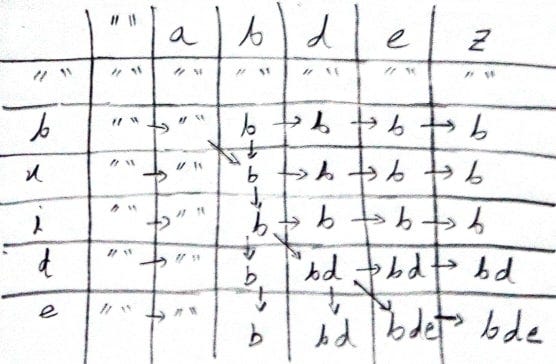 "" a b d e z
"" "" "" "" "" "" ""
b "" → "" b → b → b → b
x "" → "" b → b → b → b
i "" → "" b → b → b → b
d "" → "" b bd → bd → bd
e "" → "" b bd bde → bde